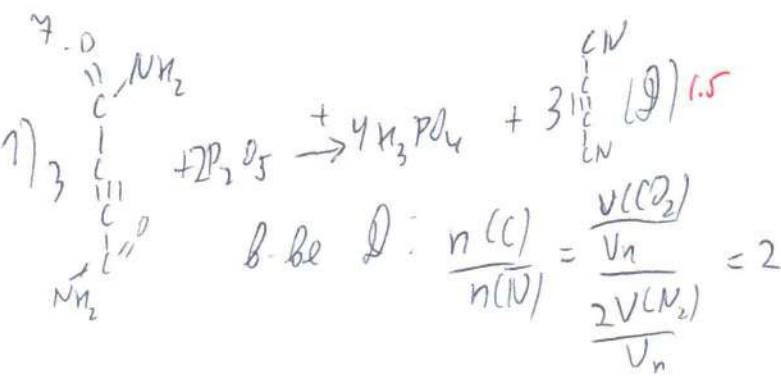 7.
1) 3 O=C(NH₂)-C≡C-C(=O)NH₂ + 2P₂O₅ →(t) 4H₃PO₄ + 3 CN-C≡C-CN (D) 1.5
в-ве D: n(C)/n(N) = (V(CO₂)/Vn)/(2V(N₂)/Vn) = 2